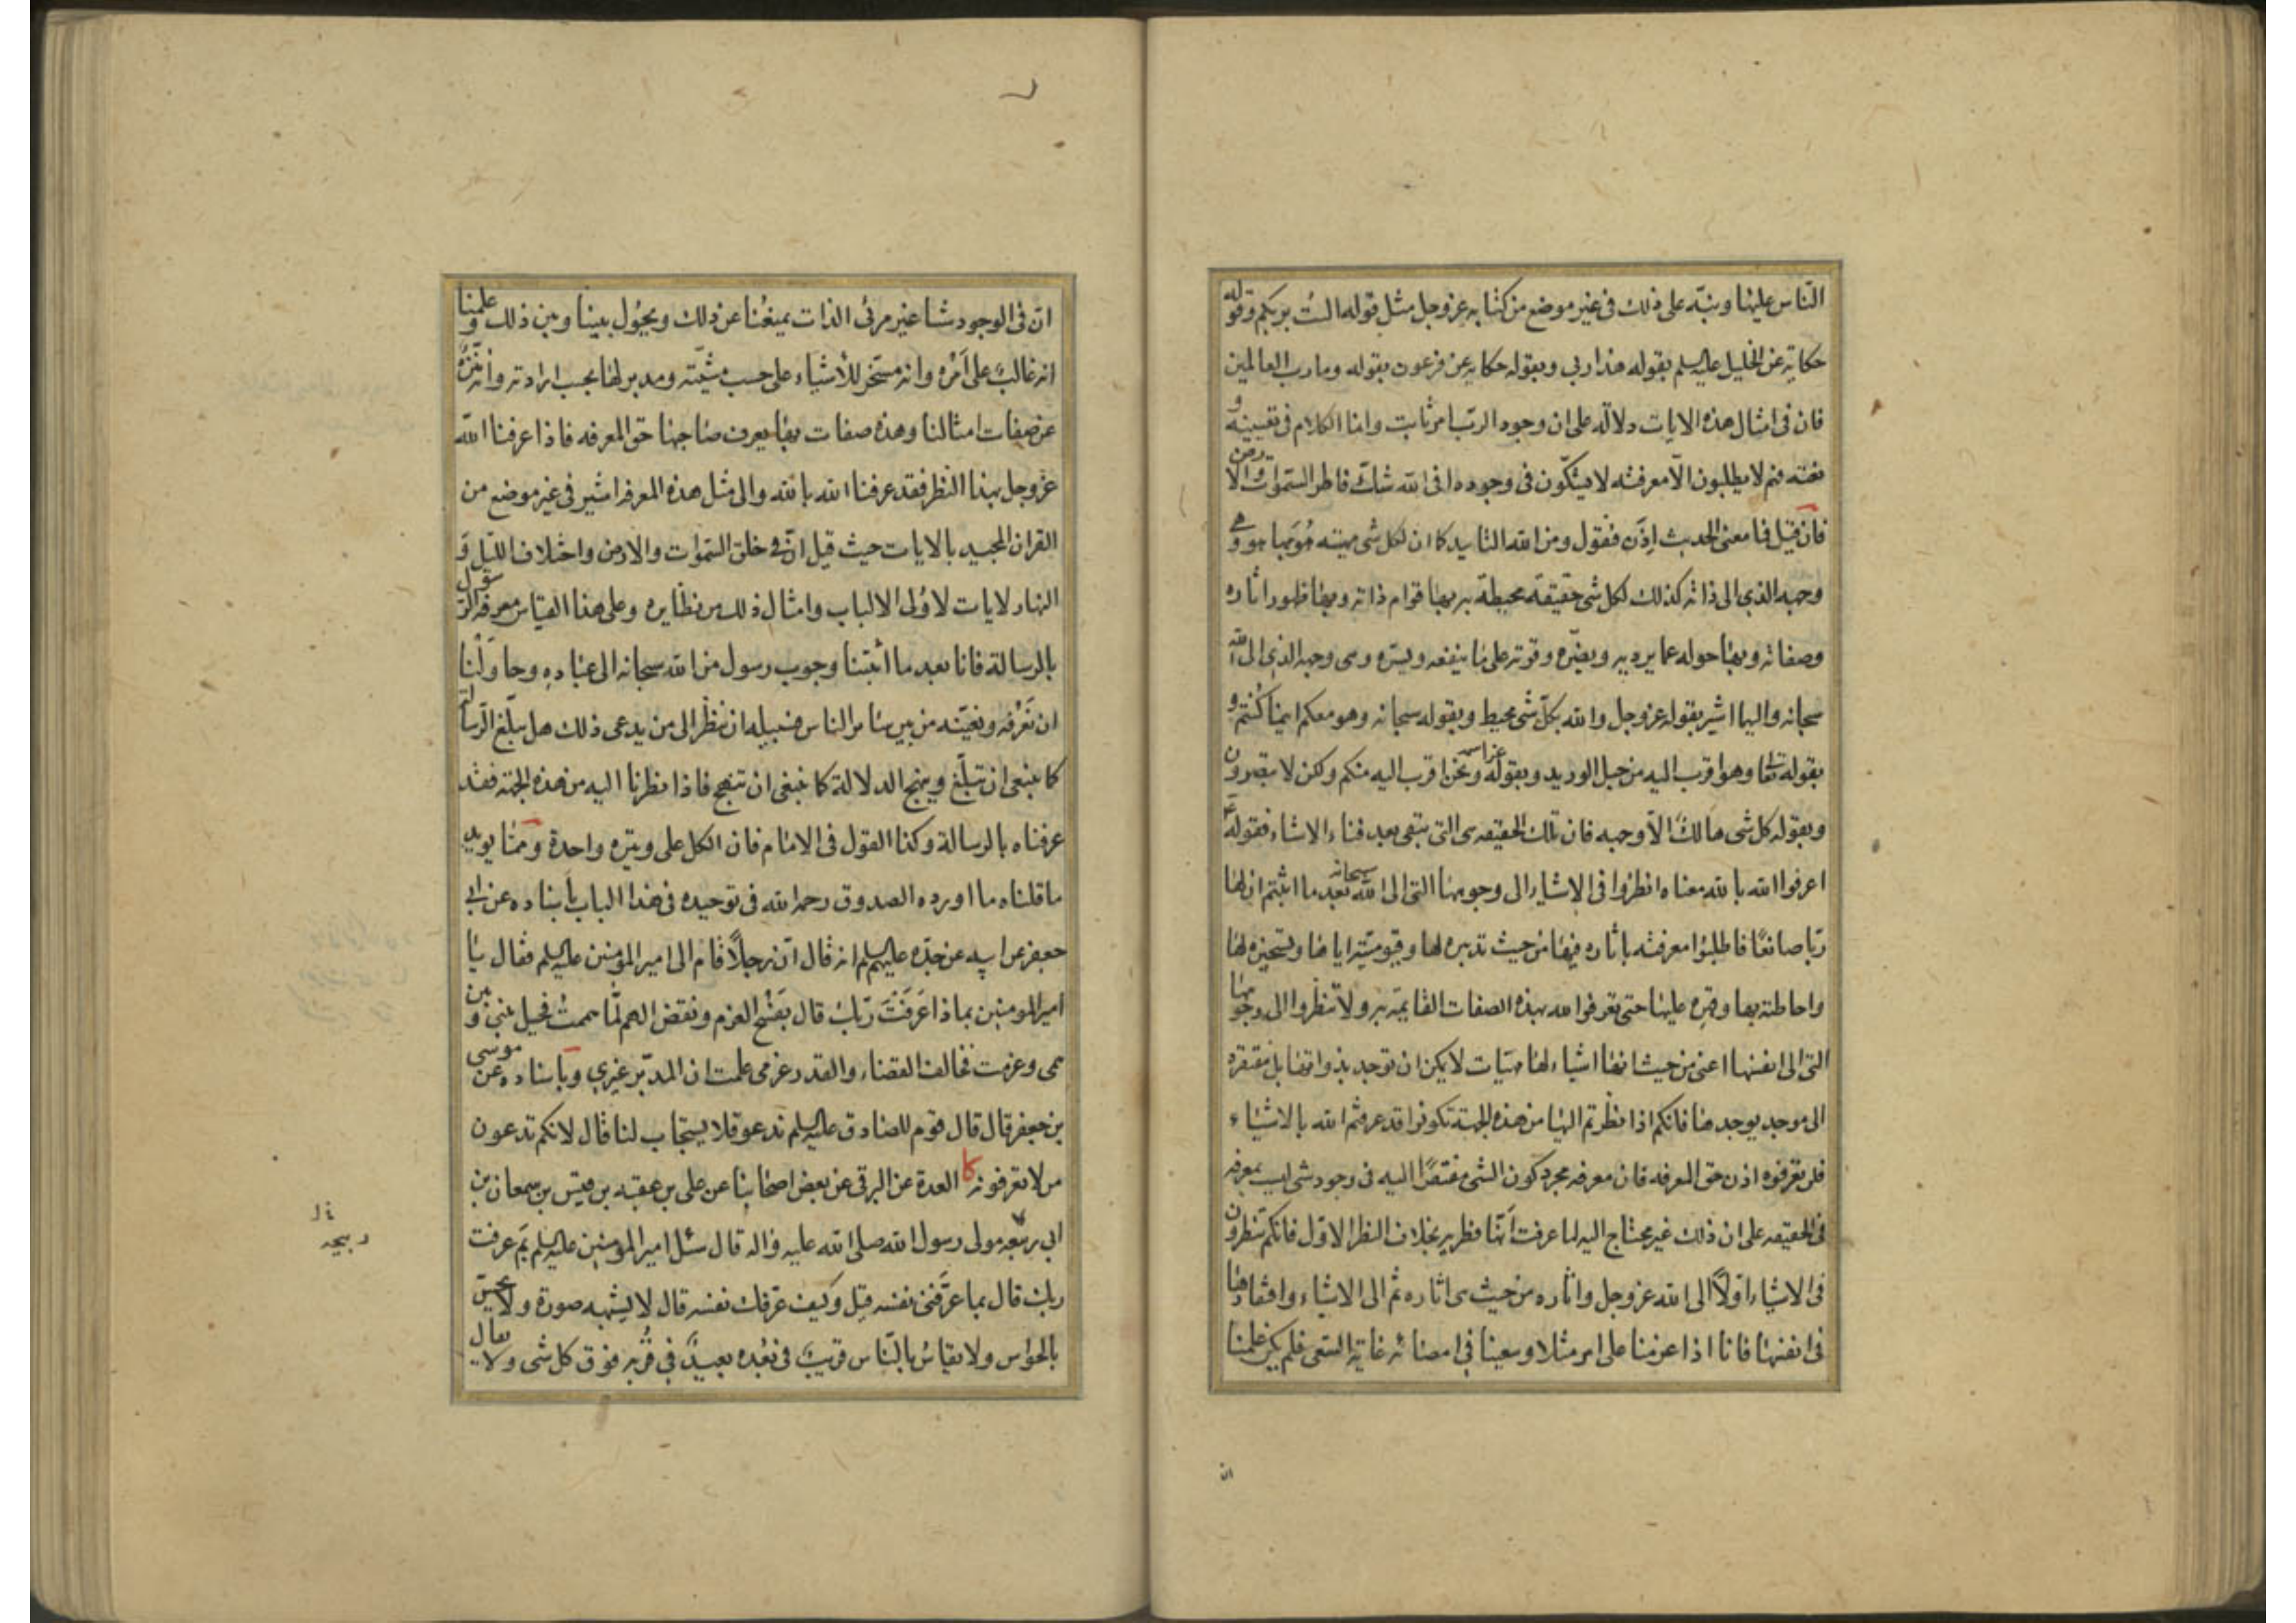 الناس عليها ونبّه على ذلك فى غير موضع من كتابه عزوجل مثل قوله الست بربكم وقوله
حكاية عن الخليل عليه السلم بقوله هذا ربى وبقوله حكاية عن فرعون بقوله وما رب العالمين
فان فى امثال هذه الايات دلالة على ان وجود الرّب امر ثابت وانما الكلام فى تعيينه و
نعته فهم لا يطلبون الاّ معرفته لا يشكّون فى وجوده افى الله شكّ فاطر السّموات والارض
فان قيل فما معنى الحديث اذن فنقول ومن الله التاييد كما ان لكل شى مهيته هو بها هو وهى
وجهه الذى الى ذاته كذلك لكل شى حقيقة محيطة به بها قوام ذاته وبها ظهور اثاره
وصفاته وبها حوله عما يرديه ويضرّه وقوته على ما ينفعه ويسرّه وهى وجهه الذى الى الله
سبحانه واليها اشير بقوله عزوجل والله بكلّ شى محيط وبقوله سبحانه وهو معكم اينما كنتم و
بقوله تعا وهو اقرب اليه من حبل الوريد وبقوله عز اسمه ونحن اقرب اليه منكم ولكن لا تبصرون
وبقوله كل شى هالك الاّ وجهه فان تلك الحقيقه هى التى تبقى بعد فناء الاشياء فقوله ع
اعرفوا الله بالله معناه انظروا فى الاشياء الى وجوهها التى الى الله سبحانه بعد ما اثبتم ان لها
ربّا صانعًا فاطلبوا معرفته باثاره فيها من حيث تدبيره لها وقيوميّته اياها وتسخيره لها
واحاطته بها وقهره عليها حتى تعرفوا الله بهذه الصفات القايمة به ولا تنظروا الى وجوهها
التى الى انفسها اعنى من حيث انها اشياء لها مهيّات لا يمكن ان توجد بذواتها بل مفتقرة
الى موجد يوجدها فانكم اذا نظرتم اليها من هذه الجهة تكونوا قد عرفتم الله بالاشياء
فلن تعرفوه اذن حق المعرفه فان معرفه مجرد كون الشى مفتقرًا اليه فى وجود شى ليست بمعرفه
فى الحقيقه على ان ذلك غير محتاج اليه لما عرفت انها فطريه بخلاف النظر الاوّل فانكم تنظرون
فى الاشياء اوّلاً الى الله عزوجل واثاره من حيث هى اثاره ثم الى الاشياء وافتقارها
فى انفسها فانا اذا عزمنا على امر مثلا وسعينا فى امضائه غاية السّعى فلم يكن علمنا
ان
انّ فى الوجود شيئا غير مرئى الذات يمنعنا عن ذلك ويحول بيننا وبين ذلك وعلمنا
انه غالبٌ على امره وانه مسخّر للاشياء على حسب مشيّته ومدبر لها بحسب ارادته وانه منزّه
عن صفات امثالنا وهذه صفات بها يعرف صاحبها حق المعرفه فاذا عرفنا الله
عزوجل بهذا النظر فقد عرفنا الله بالله والى مثل هذه المعرفه اشير فى غير موضع من
القران المجيد بالايات حيث قيل انّ فى خلق السّموات والارض واختلاف اللّيل و
النهار لايات لاولى الالباب وامثال ذلك من نظايره وعلى هذا القياس معرفه الرسول
بالرسالة فانا بعد ما اثبتنا وجوب رسول من الله سبحانه الى عباده وحاولنا
ان نعرفه ونعيّنه من بين سائر الناس فسبيله ان ننظر الى من يدعى ذلك هل يبلّغ الرّسالة
كما ينبغى ان تبلّغ وينهج الدلالة كما ينبغى ان تنهج فاذا نظرنا اليه من هذه الجهة فقد
عرفناه بالرسالة وكذا القول فى الامام فان الكل على وتيره واحدة وممّا يويد
ما قلناه ما اورده الصدوق رحمه الله فى توحيده فى هذا الباب باسناده عن ابى
جعفر عن ابيه عن جدّه عليهم السلم انه قال انّ رجلاً قام الى امير المؤمنين عليه السلم فقال يا
امير المومنين بماذا عَرَفتَ ربّك قال بفسخ العزم ونقض الهم لمّا هممت فحيل بينى وبين
همى وعزمت فخالف القضاء والقدر عزمى علمت ان المدبّر غيرى وباسناده عن موسى
بن جعفر قال قال قوم للصادق عليه السلم ندعو فلا يستجاب لنا قال لانكم تدعون
من لا تعرفونه كا العدة عن البرقى عن بعض اصحابنا عن على بن عقبه بن قيس بن سمعان بن
ابى ربيعه مولى رسول الله صلى الله عليه واله قال سئل امير المؤمنين عليه السلم بم عرفت
ربك قال بما عرّفنى نفسه قيل وكيف عرّفك نفسه قال لا يشبهه صورة ولا يحسّ
بالحواس ولا يقاس بالنّاس قريبٌ فى بُعده بعيدٌ فى قُربه فوق كل شى ولا يقال